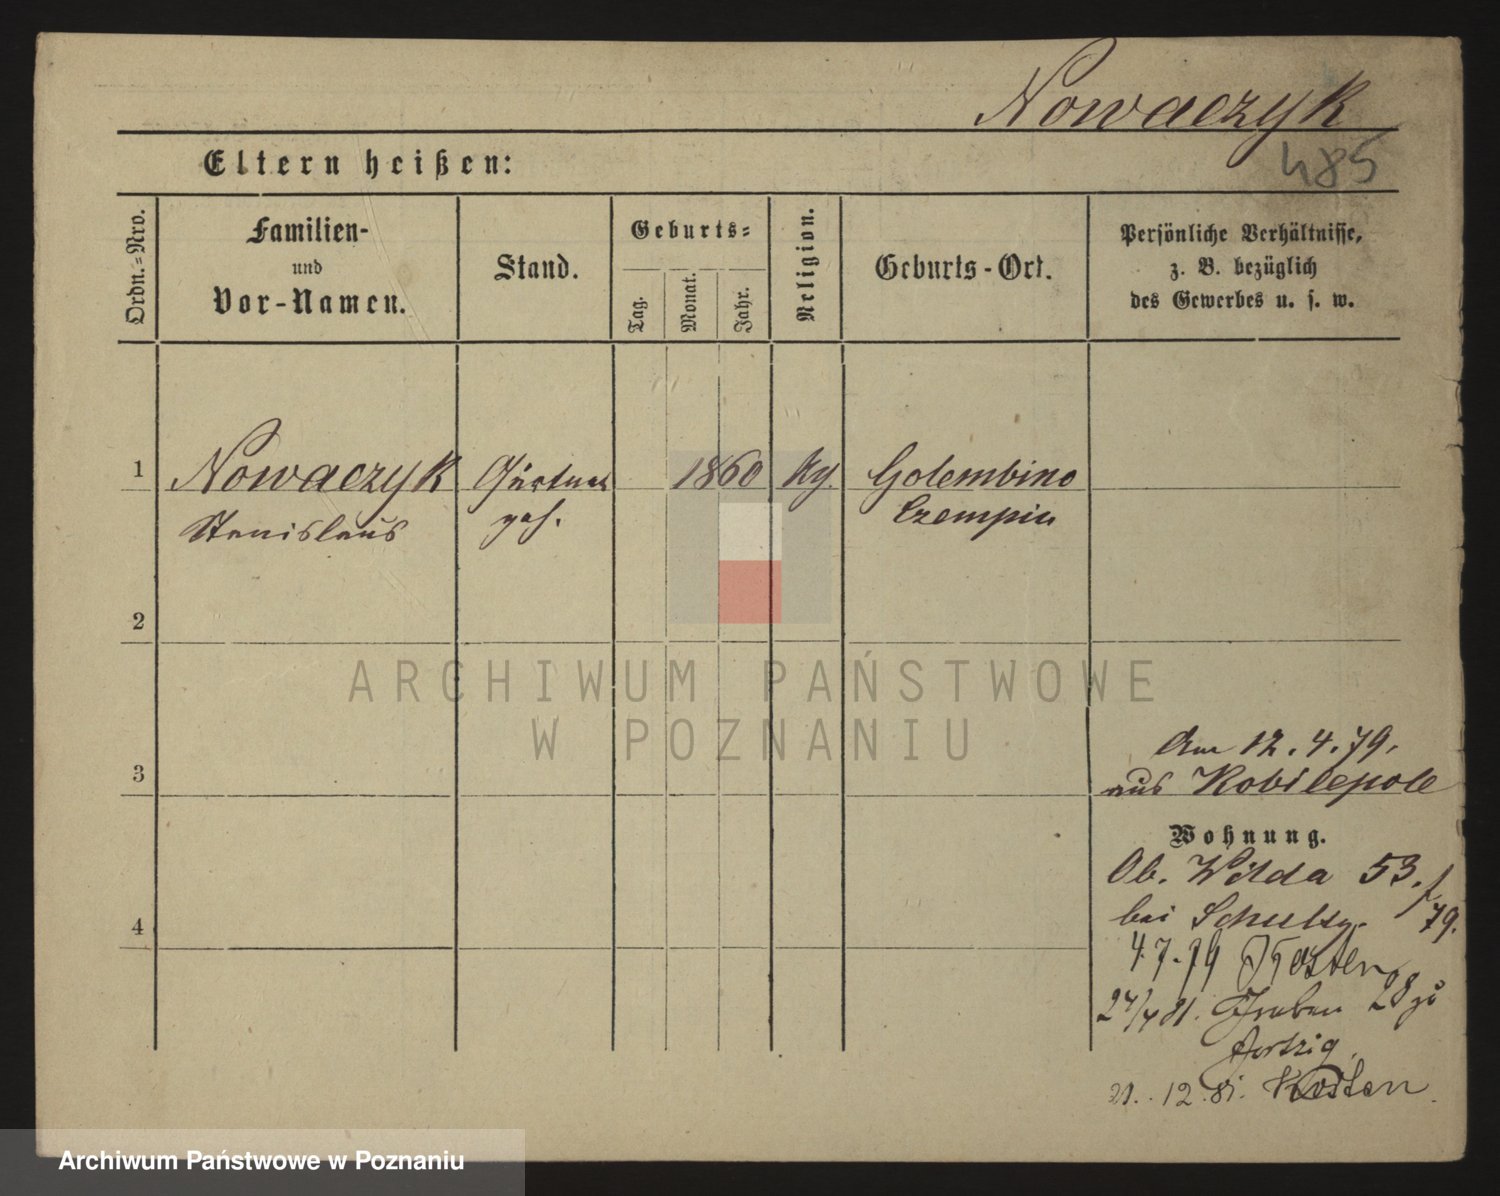 Nowaczyk
485
Eltern heißen:
Ordn.=Nro.
Familien-
und
Vor-Namen.
Stand.
Geburts=
Tag.
Monat.
Jahr.
Religion.
Geburts-Ort.
Persönliche Verhältnisse,
z. B. bezüglich
des Gewerbes u. s. w.
1 Nowaczyk Gärtner 1860 Golembino
Stanislaus geh. Czempin
2
ARCHIWUM PAŃSTWOWE
W POZNANIU
3
Am 12.4.79.
aus Kobilepole
Wohnung.
Ob. Wilda 53.
bei Schultz. 79.
4
4.7.79 Kosten
27/4 81. Graben 28 zu
21.12.81. Kosten
Archiwum Państwowe w Poznaniu